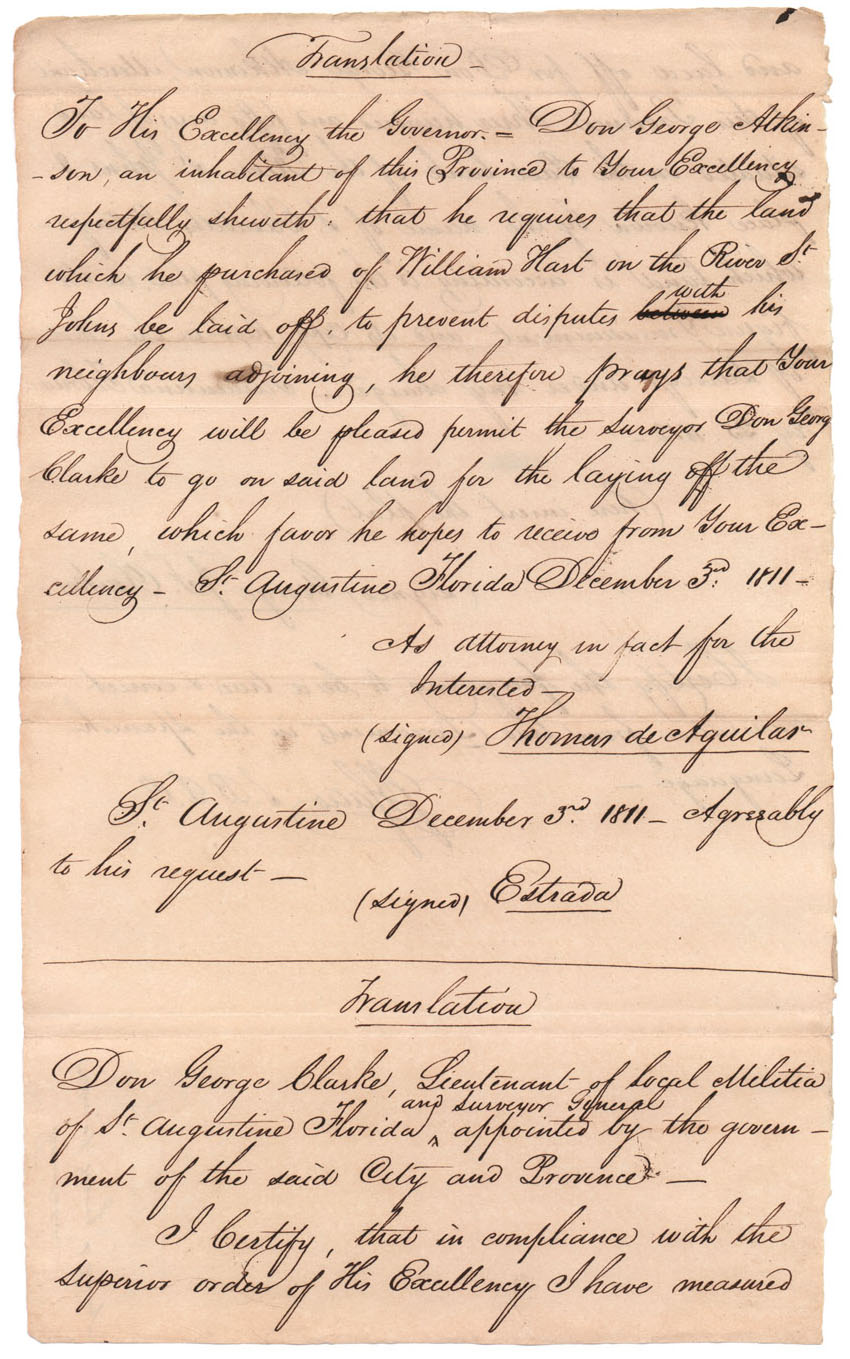 Translation —
To His Excellency the Governor. = Don George Atkin-
-son, an inhabitant of this Province to Your Excellency
respectfully sheweth: that he requires that the land
which he purchased of William Hart on the River St
Johns be laid off, to prevent disputes between with his
neighbours adjoining, he therefore prays that Your
Excellency will be pleased permit the surveyor Don George
Clarke to go on said land for the laying off the
same, which favor he hopes to receive from Your Ex-
cellency — St. Augustine Florida December 3rd. 1811 —
As attorney in fact for the
Interested —
(signed) Thomas de Aguilar
St. Augustine December 3rd. 1811 — Agreeably
to his request —
(signed) Estrada
Translation
Don George Clarke, Lieutenant of Local Militia
of St. Augustine Florida ^ and Surveyor General appointed by the govern-
ment of the said City and Province —
I Certify, that in compliance with the
superior order of His Excellency I have measured